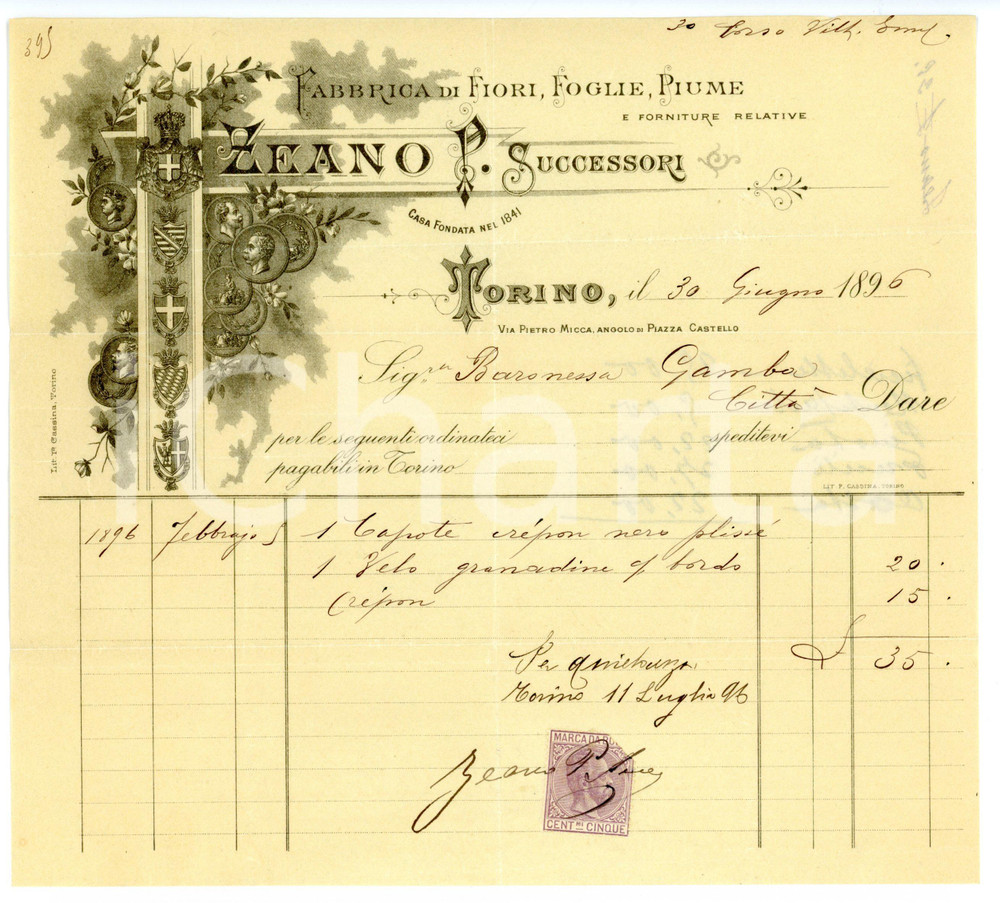 395
30 Corso Vitt. Eml.
FABBRICA DI FIORI, FOGLIE, PIUME
E FORNITURE RELATIVE
ZEANO P. SUCCESSORI
CASA FONDATA NEL 1841
TORINO, il 30 Giugno 1896
VIA PIETRO MICCA, ANGOLO DI PIAZZA CASTELLO
Sigra Baronessa Gamba
Città Dare
per le seguenti ordinateci speditevi
pagabili in Torino
LIT. F. CASSINA, TORINO
Lit. Po Cassina, Torino
1896 Febbrajo 5 1 Capote crépon nero plissé
1 Velo granadine c/ bordo 20.
crépon 15.
£ 35.
Per quietanza
Torino 11 Luglio 96
Zeano P.
MARCA DA BO
CENT.MI CINQUE
iCharta